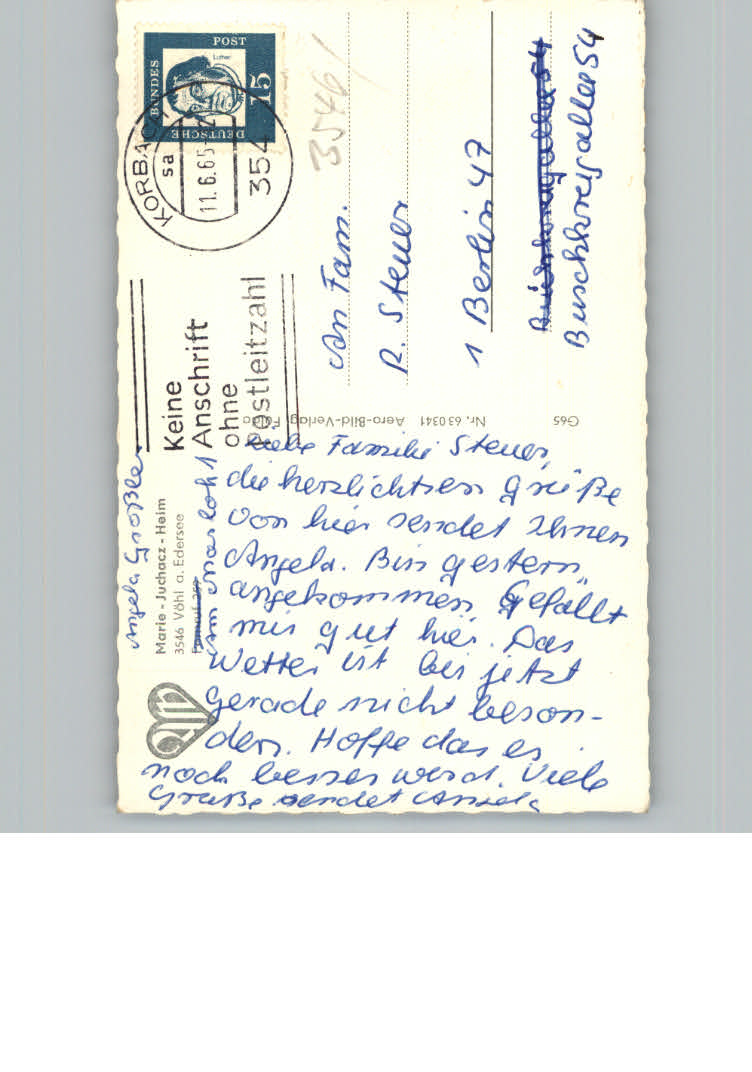 Angela Größler
Marie-Juchacz-Heim
3546 Vöhl a. Edersee
Liebe Familie Steuer,
die herzlichtsen Grüße
von hier sendet Ihnen
Angela. Bin gestern
angekommen. Gefällt
mir gut hier. Das
Wetter ist bis jetzt
gerade nicht beson-
ders. Hoffe das es
noch besser werd. Viele
Grüße sendet Angela
G65 Nr. 630341 Aero-Bild-Verlag Fulda
DEUTSCHE BUNDESPOST
Luther
15
354 KORBACH
sa
11.6.65
Keine
Anschrift
ohne
Postleitzahl
3546/
An Fam.
R. Steuer
1 Berlin 47
Buschkrugallee 54